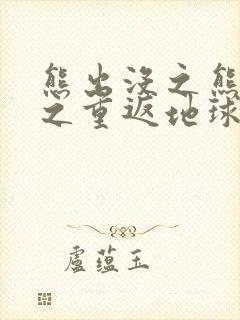 熊出没之熊
之重返地球
盧蕴玉